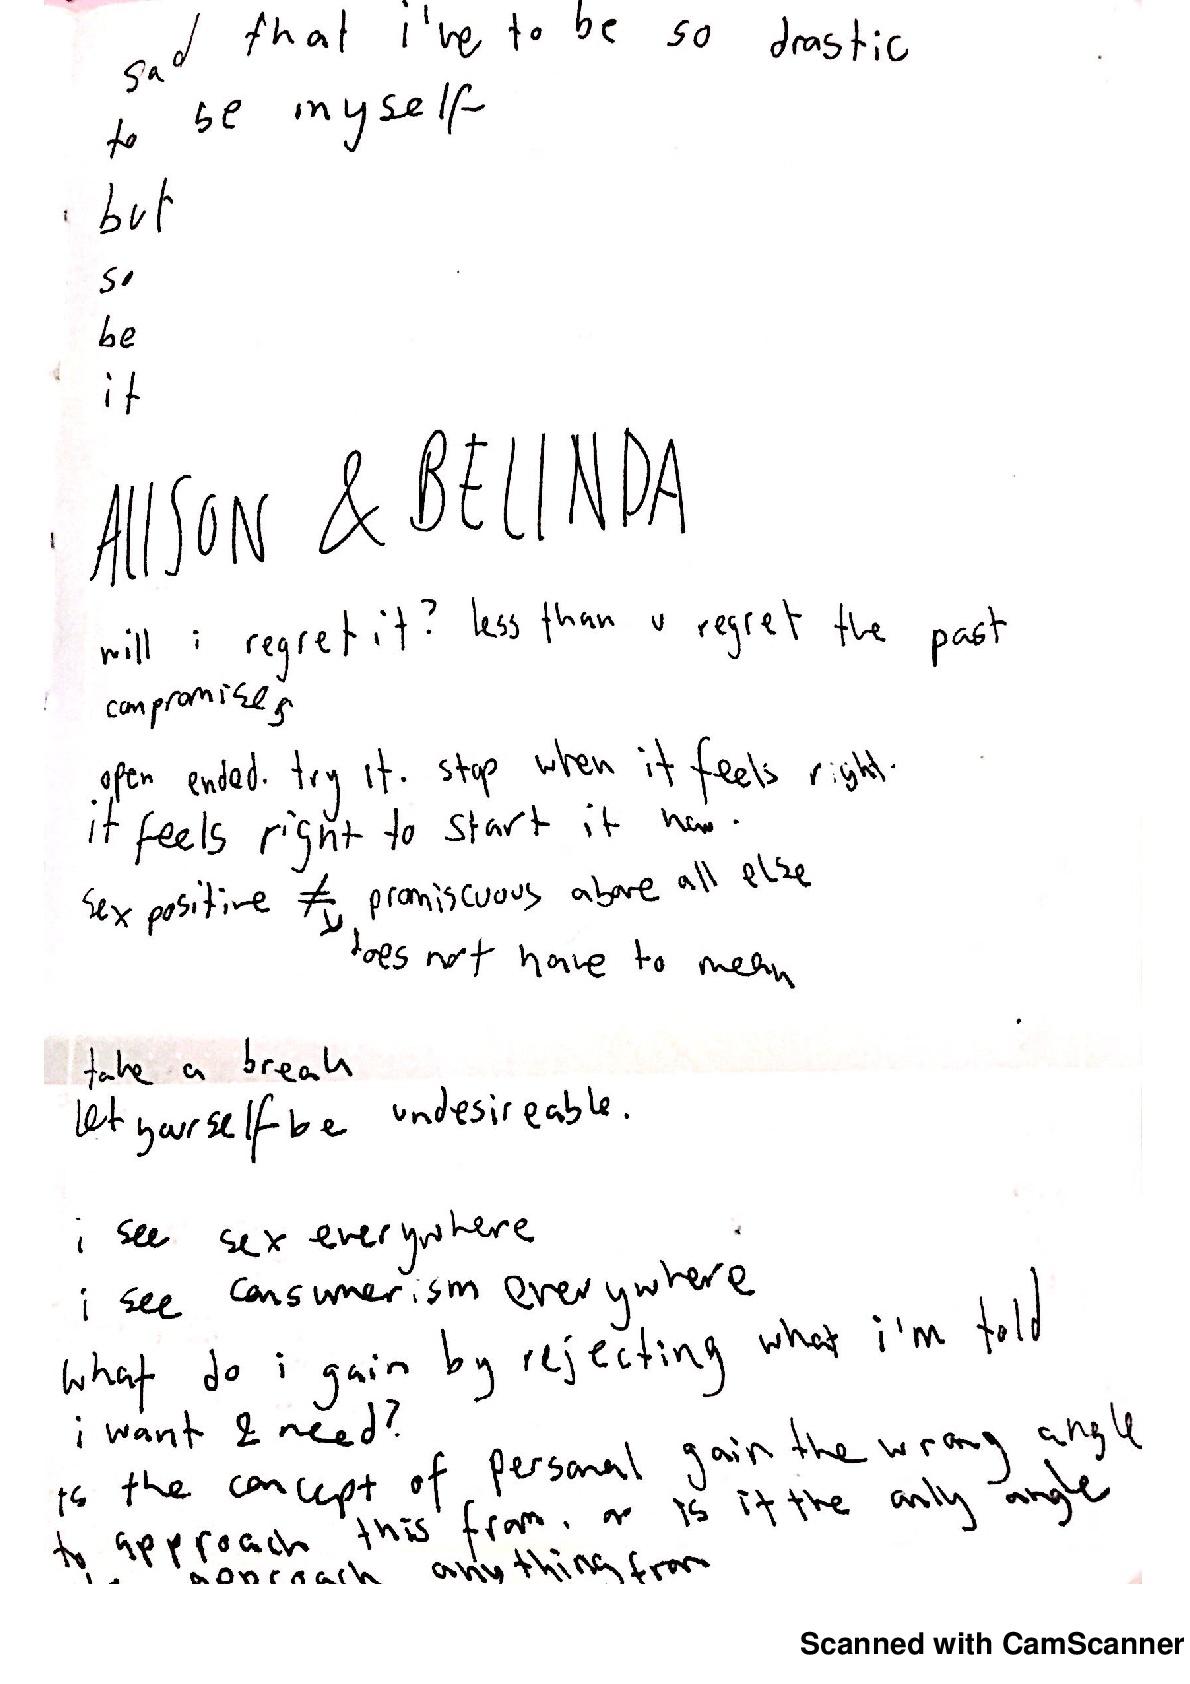 sad that i've to be so drastic
to be myself
but
so
be
it
ALISON & BELINDA
will i regret it? less than u regret the past
compromises
open ended. try it. stop when it feels right.
it feels right to start it now.
sex positive ≠ promiscuous above all else
does not have to mean
take a break
let yourself be undesireable.
i see sex everywhere
i see consumerism everywhere
what do i gain by rejecting what i'm told
i want & need?
is the concept of personal gain the wrong angle
to approach this from. or is it the only angle
to approach anything from
Scanned with CamScanner